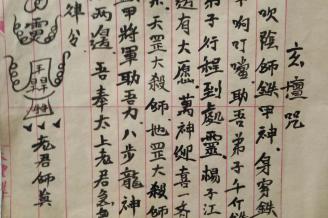 玄壇咒
吹陰師鉄甲神身雪鉄
甲响叮噹助吾弟子千斤鉄
弟子行程到處靈楊子江
邊有大愿萬神迎喜
天罡大殺師地罡大殺師
甲將軍助吾力八步龍神
兩邊吾奉太上老君急
律令
老君師真